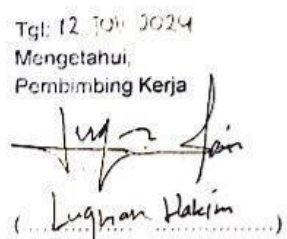 Tgl: 12 Juli 2024
Mengetahui,
Pembimbing Kerja
( Luqman Hakim )